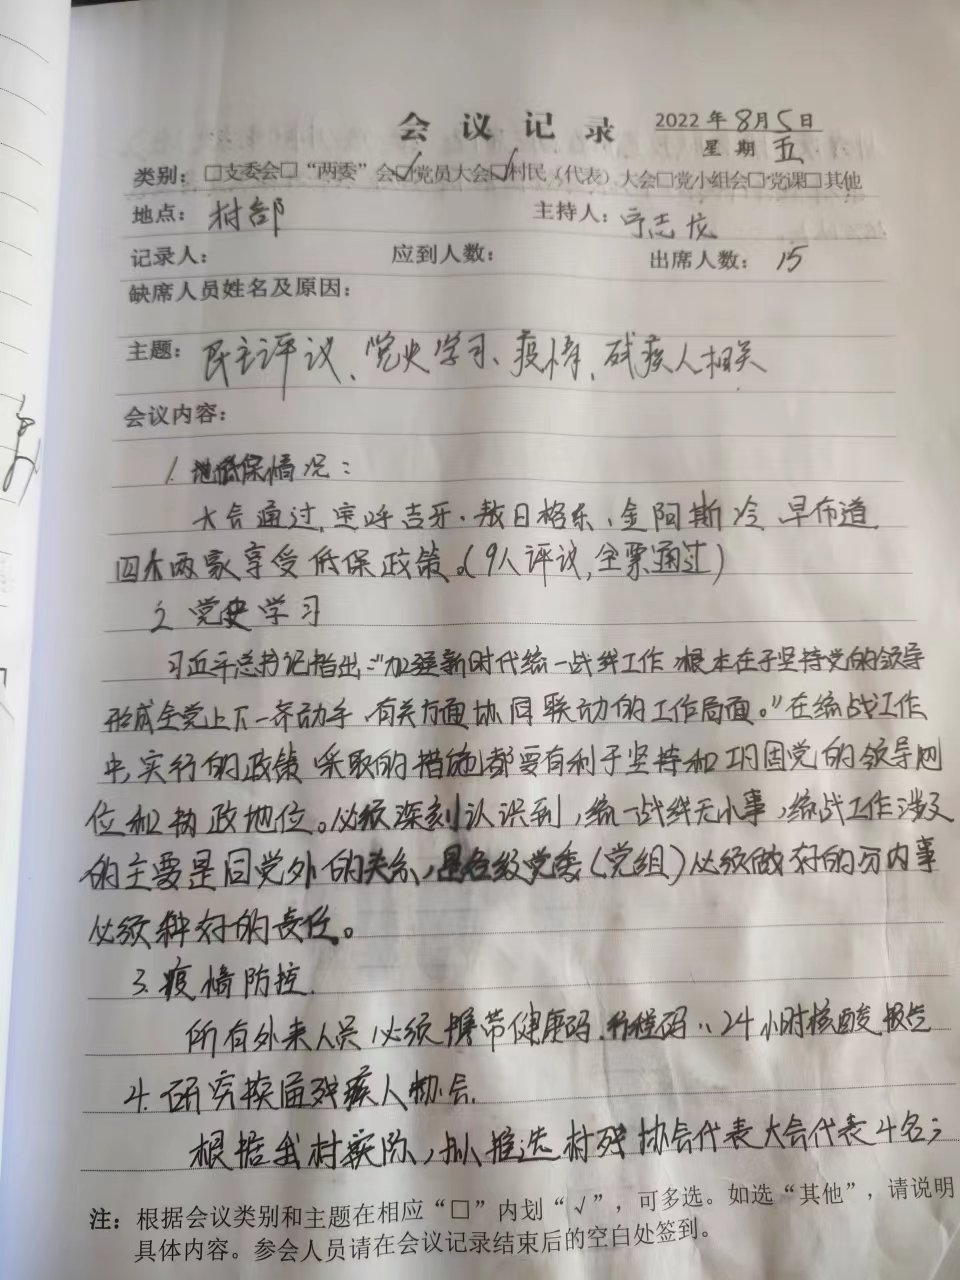 会议记录
2022年8月5日
星期五
类别：□支委会□“两委”会☑党员大会☑村民（代表）大会□党小组会□党课□其他
地点：村部 主持人：宁志成
记录人： 应到人数： 出席人数：15
缺席人员姓名及原因：
主题：民主评议、党史学习、疫情、残疾人相关
会议内容：
1.低保情况：
大会通过，宝呼吉牙、敖日格乐、金阿斯冷、早布道
四人两家享受低保政策。（9人评议，全票通过）
2.党史学习
习近平总书记指出：“加强新时代统一战线工作 根本在于坚持党的领导
形成全党上下一齐动手、有关方面协同联动的工作局面。”在统战工作
中，实行的政策 采取的措施都要有利于坚持和巩固党的领导地
位和执政地位。必须深刻认识到，统一战线无小事，统战工作涉及
的主要是同党外的关系，是各级党委（党组）必须做好的分内事
必须种好的责任。
3.疫情防控.
所有外来人员必须携带健康码.行程码、24小时核酸报告
4.研究换届残疾人协会.
根据我村实际，拟推选村残协会代表大会代表4名；
注：根据会议类别和主题在相应“□”内划“√”，可多选。如选“其他”，请说明
具体内容。参会人员请在会议记录结束后的空白处签到。